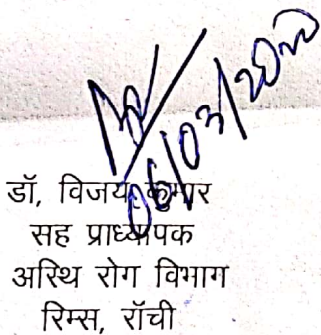 06/03/2020
डॉ, विजय कुमार
सह प्राध्यापक
अस्थि रोग विभाग
रिम्स, रॉची